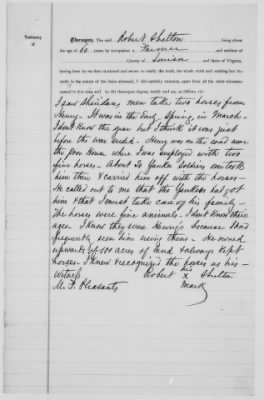 Thereupon, The said Robert Shelton being about
the age of 60 years, by occupation a Farmer and resident of
County of Louisa and State of Virginia,
having been by me first cautioned and sworn to testify the truth, the whole truth and nothing but the
truth in the matter of the claim aforesaid, I did carefully examine, apart from all the other witnesses
named in this case, and he did thereupon depose, testify and say, as follows, viz:
I saw Sheridans men take two horses from
Henry. It was in the Early Spring, in March.
I don't know the year but I think it was just
before the war ended. Henry was on the road near
the Poor House where I was employed with two
fine horses. About 20 Yankee Soldiers overtook
him then & carried him off with the horses—
He called out to me that the Yankees had got
him & that I must take care of his family—
The horses were fine animals. I don't know their
ages. I know they were Henry's because I had
frequently seen him using them— He owned
upwards of 100 acres of land & always kept
horses— I knew & recognized the horses as his—
Witness Robert his X Shelton
M. F. Pleasants mark